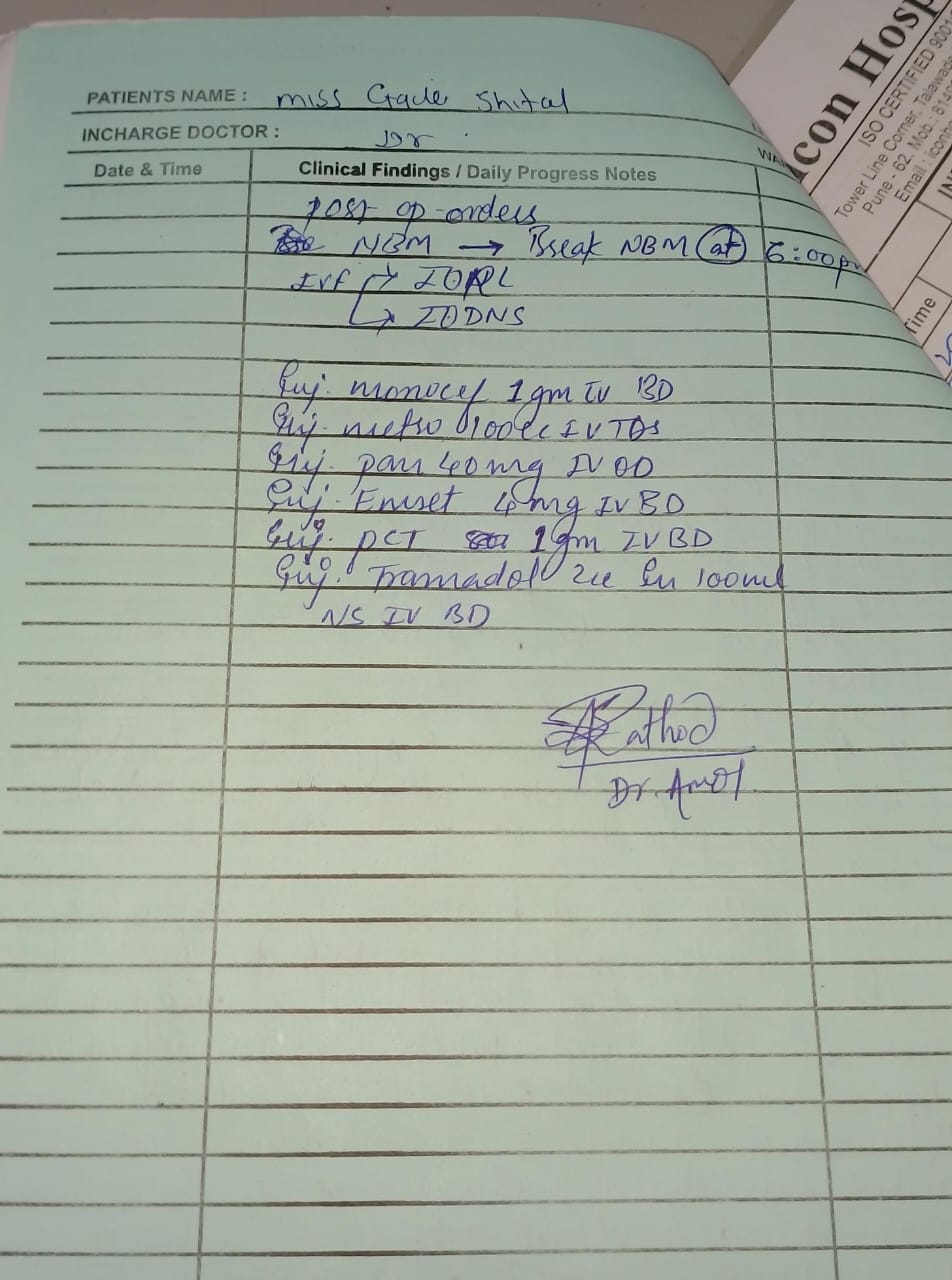 PATIENTS NAME : miss Gade Shital
INCHARGE DOCTOR : Dr
WA
Date & Time
Clinical Findings / Daily Progress Notes
post op orders
NBM → Break NBM at 6:00pm
IVF → I⊙RL
↳ I⊙DNS
Inj. monocef 1gm IV BD
Inj. metro 100cc IV TDS
Inj. pan 40mg IV OD
Inj. Emset 4mg IV BD
Inj. PCT 1gm IV BD
Inj. Tramadol 2cc in 100ml
NS IV BD
Rathod
Dr. Amol
Icon Hosp
ISO CERTIFIED 9001
Tower Line Corner, Talawade
Pune - 62. Mob.: 8140
Email : icon
Time